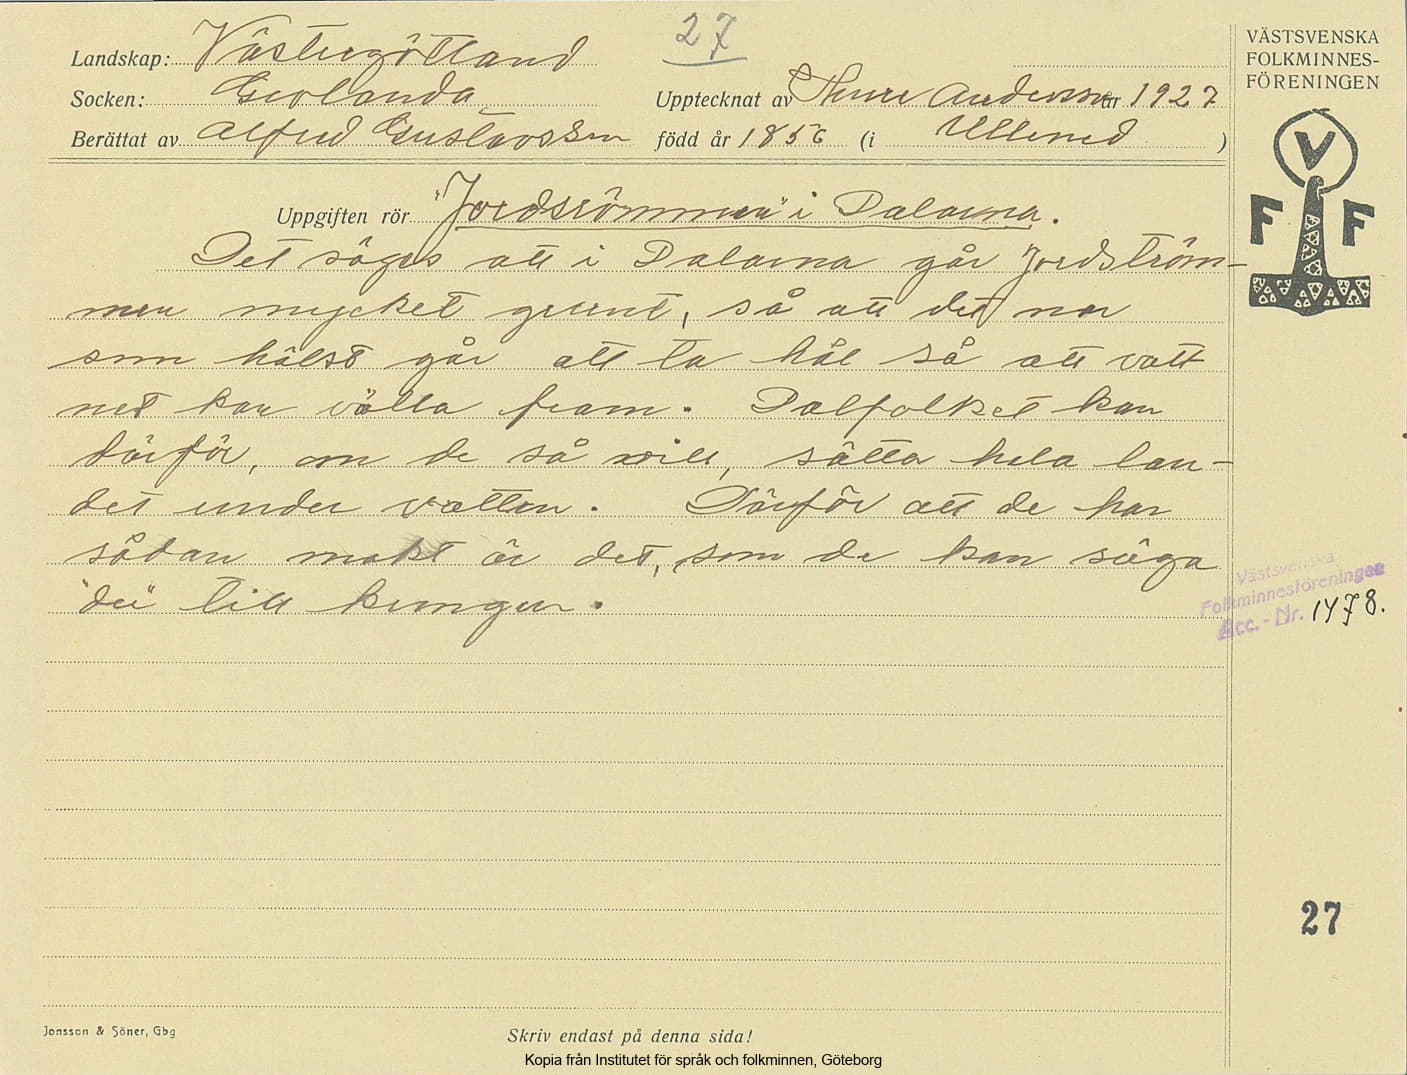 27
Landskap: Västergötland
Socken: Gerolanda
Upptecknat av Thure Andersson år 1927
Berättat av Alfred Gustavsson född år 1856 (i Ullened )
Uppgiften rör "Jordsrömmen" i Dalarna.
Det säges att i Dalarna går Jordström-
men mycket grunt, så att det var
som hälst går att ta hål så att vatt
net kan välla fram. Dalfolket kan
därför, om de så vill, sätta hela lan-
det under vatten. Därför att de har
sådan makt är det, som de kan säga
"du" till kungen.
VÄSTSVENSKA
FOLKMINNES-
FÖRENINGEN
V
F F
Västsvenska
Folkminnesföreningen
Acc.-Nr. 1478.
27
Jonsson & Söner, Gbg
Skriv endast på denna sida!
Kopia från Institutet för språk och folkminnen, Göteborg